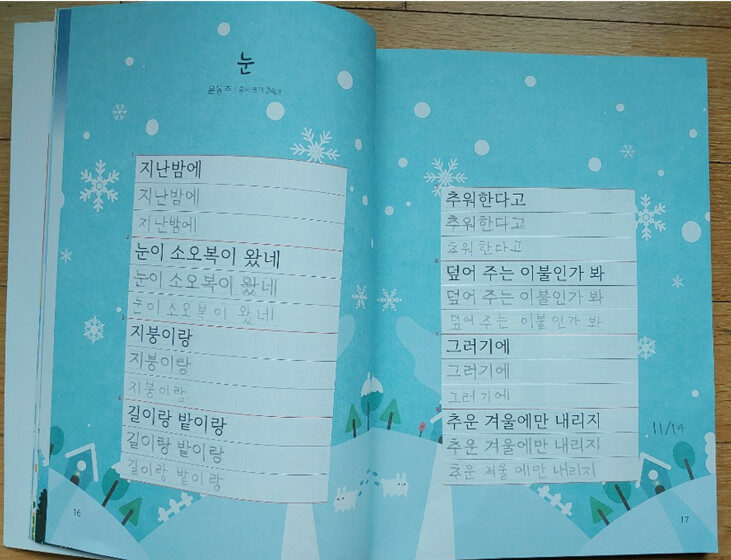 눈
윤동주 | 글씨 크기 24pt
1
지난밤에
지난밤에
지난밤에
2
눈이 소오복이 왔네
눈이 소오복이 왔네
눈이 소오복이 왔네
3
지붕이랑
지붕이랑
지붕이랑
4
길이랑 밭이랑
길이랑 밭이랑
길이랑 밭이랑
16
추워한다고
추워한다고
추워한다고
6
덮어 주는 이불인가 봐
덮어 주는 이불인가 봐
덮어 주는 이불인가 봐
그러기에
그러기에
그러기에
추운 겨울에만 내리지
추운 겨울에만 내리지
추운 겨울에만 내리지
11/14
17